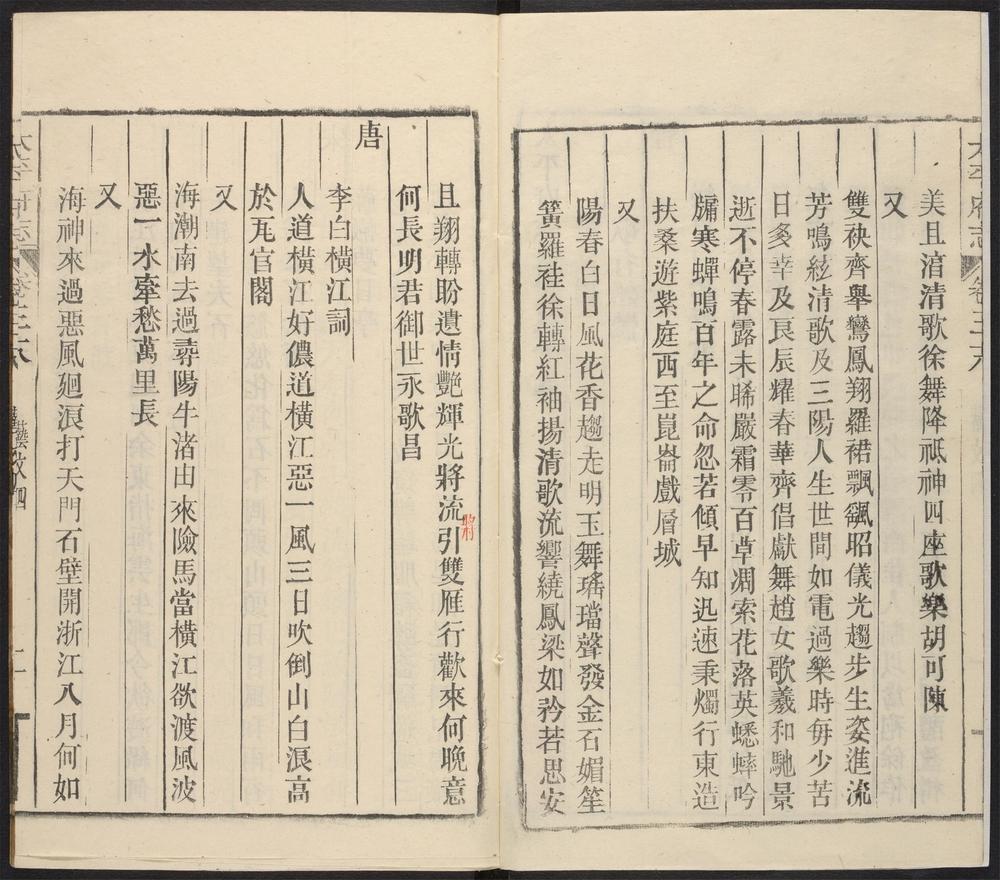 太平府志 卷三十八
美且湇清歌徐舞降祗神四座歌樂胡可陳
又
雙袂齊舉鸞鳳翔羅裙飄颻昭儀光趨步生姿進流
芳鳴絃清歌及三陽人生世間如電過樂時每少苦
日多幸及良辰耀春華齊倡獻舞趙女歌羲和馳景
逝不停春露未晞嚴霜零百草凋索花落英蟋蟀吟
牖寒蟬鳴百年之命忽若傾早知迅速秉燭行東造
扶桑遊紫庭西至崑崙戲層城
又
陽春白日風花香趨走明玉舞瑤璫聲發金石媚笙
簧羅袿徐轉紅袖揚清歌流響繞鳳梁如矜若思安
且翔轉盼遺情艷輝光將流引雙雁行歡來何晚意
何長明君御世永歌昌
唐
李白橫江詞
人道橫江好儂道橫江惡一風三日吹倒山白浪高
於瓦官閣
又
海潮南去過尋陽牛渚由來險馬當橫江欲渡風波
惡一水牽愁萬里長
又
海神來過惡風廻浪打天門石壁開浙江八月何如
太平府志 卷三十八 藝文四 二